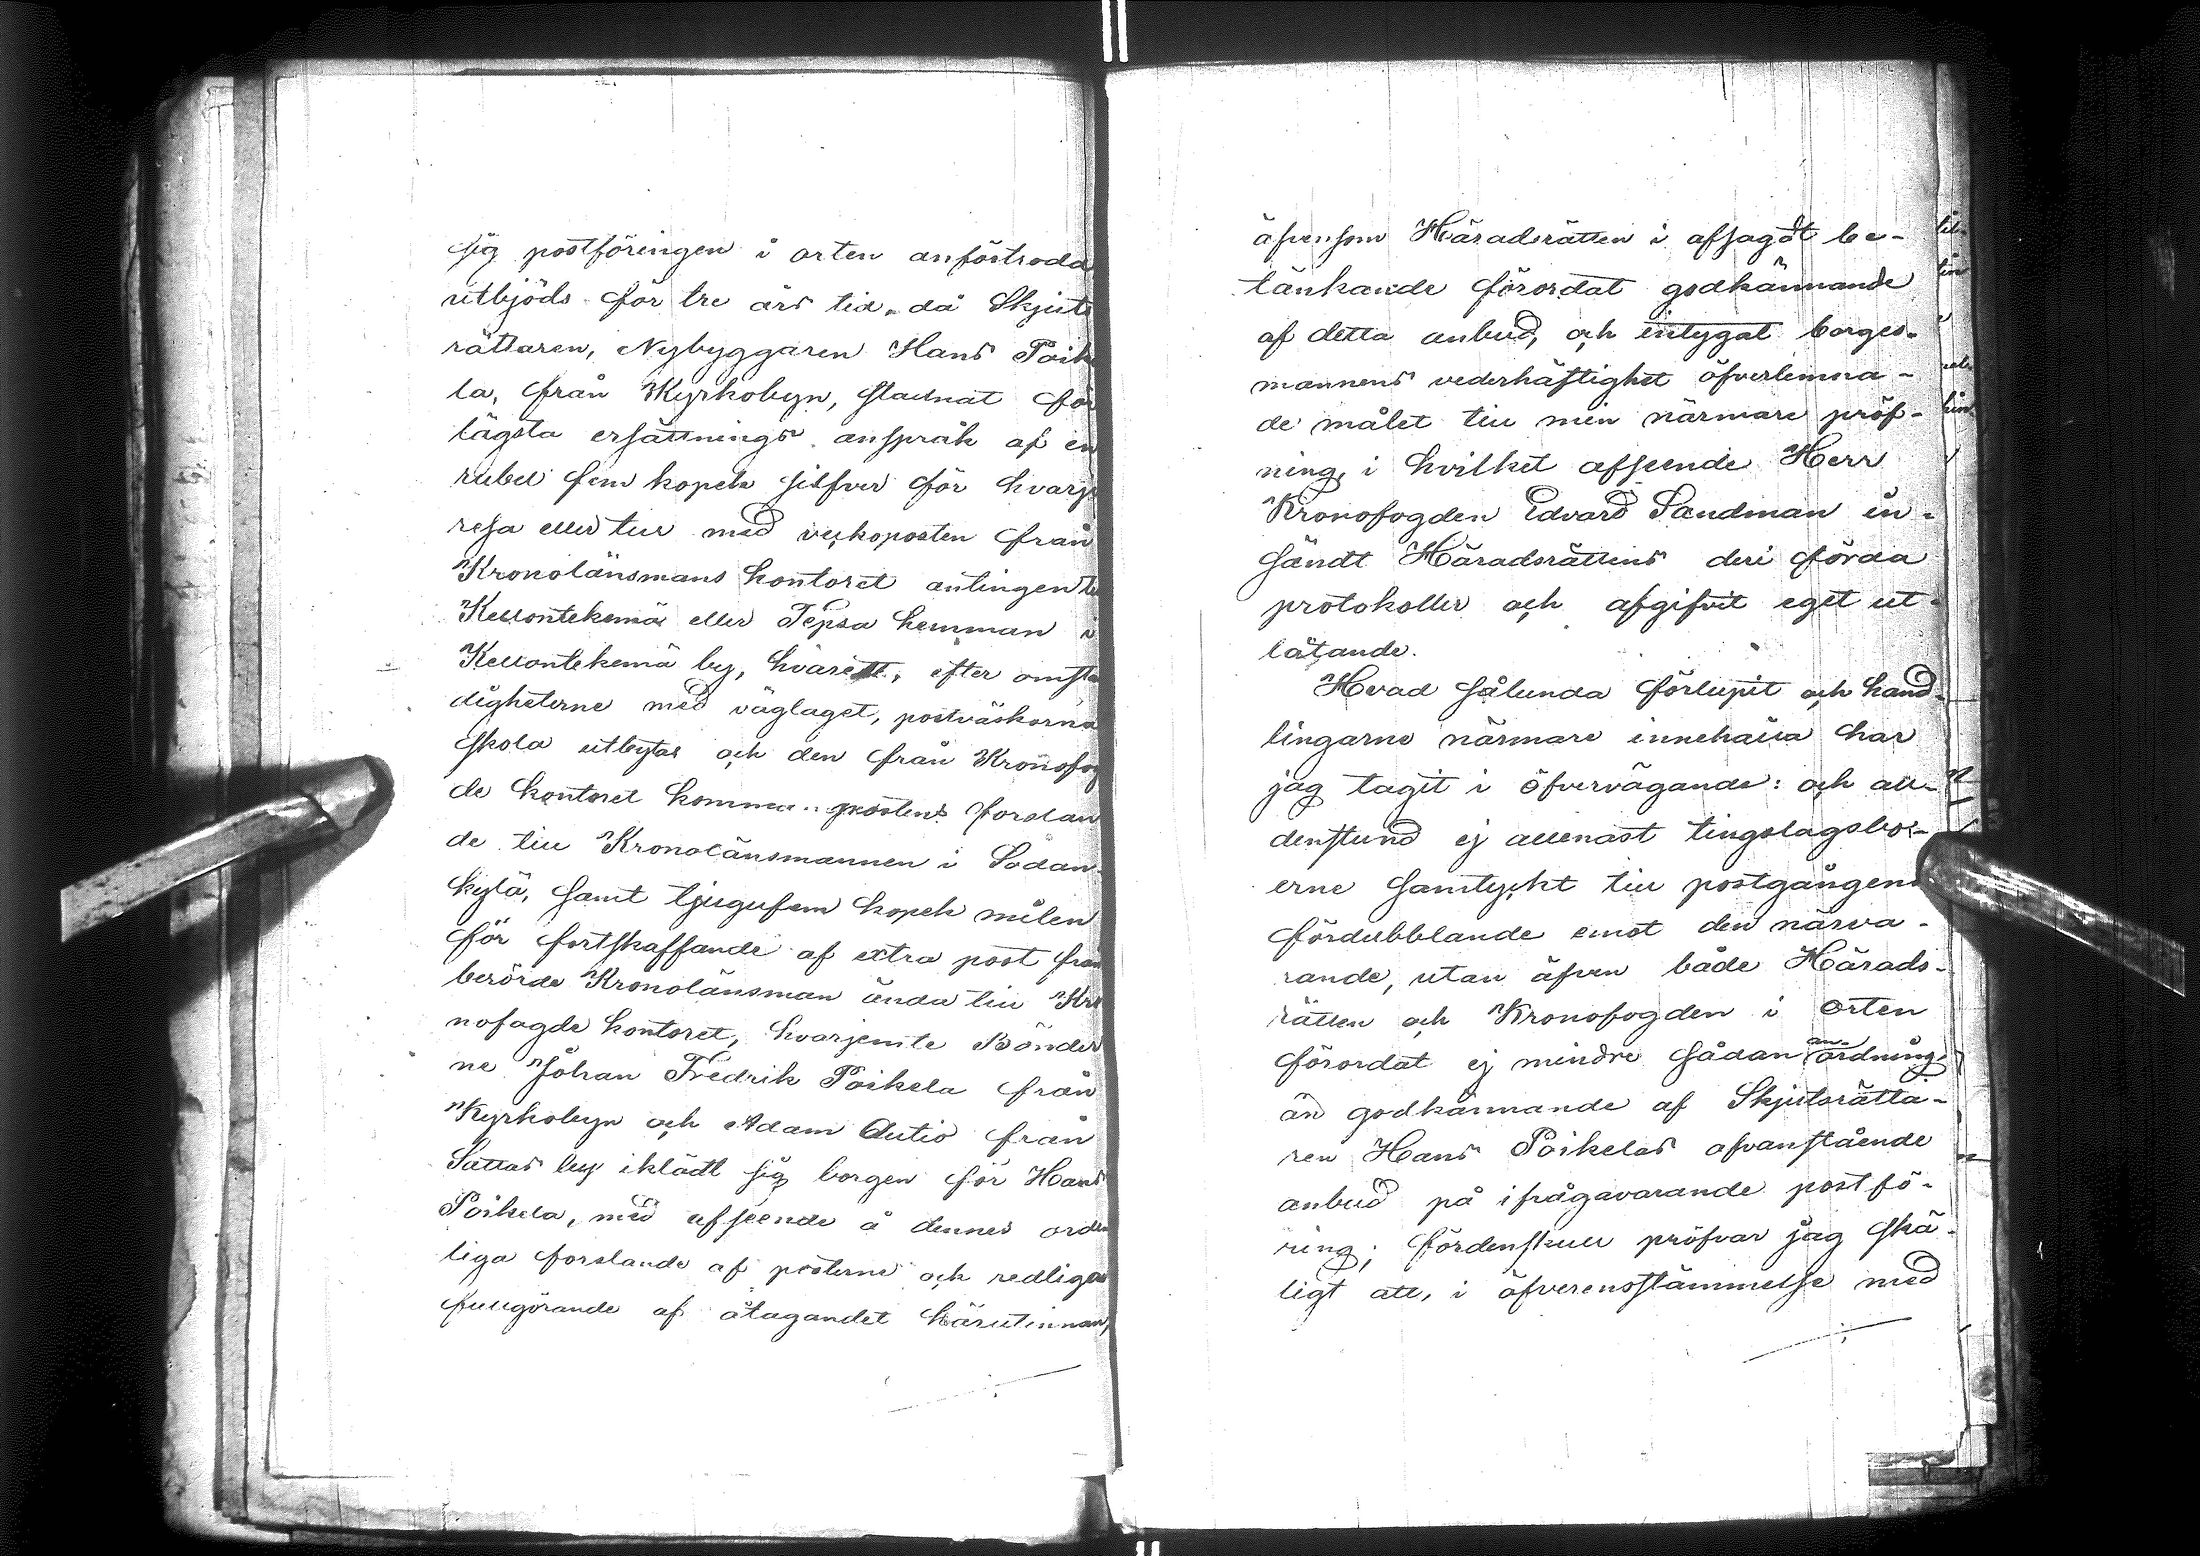 sig postföringen i orten anförtroda
utbjöds för tre års tid, då Skjuts
rättaren, Nybyggaren Hans Poik
la, från Kyrkobyn, stadnat för
lägsta ersättnings anspråk af en
rubel fem kopek silfver för hvarje
resa eller tur med veckoposten från
Kronolänsmans kontoret antingen
Kellontekemä eller Tepsa hemman i
Kellontekemä by, hvarest, efter omstä
digheterne med väglaget, postväskorna
skola utbytas och den från Kronofog
de kontoret komman postens forslan
de till Kronolänsmannen i Sodan
kylä, samt tjugufem kopek milen
för fortskaffande af extra post från
berörde Kronolänsman ända till Kro
nofogde kontoret, hvarjemte Bönder
ne Johan Fredrik Poikela från
Kyrkobyn och Adam Autio från
Sattas by iklädt sig borgen för Hans
Poikela, med afseende å dennes orden
liga forslande af posterne och redliga
fullgörande af åtagandet härutinnan,
äfvensom Häradsrätten i afsagdt be-
tänkande förordat godkännande
af detta anbud, och intygat borges-
mannens vederhäftighet öfverlemna-
de målet till min närmare pröf-
ning, i hvilket afseende Herr
Kronofogden Edvard Sandman in-
sändt Häradsrättens deri förda
protokoller och afgifvit eget ut-
låtande.
Hvad sålunda förlupit och hand-
lingarne närmare innehålla har
jag tagit i öfvervägande: och all-
denstund ej allenast tingslagsbo-
erne samtyckt till postgångens
fördubblande emot den närva-
rande, utan äfven både Härads-
rätten och Kronofogden i orten
förordat ej mindre sådan anordning
än godkännande af Skjutsrätta-
ren Hans Poikelas ofvanstående
anbud på ifrågavarande postfö-
ring; fördenskull pröfvar jag skä-
ligt att, i öfverensstämmelse med